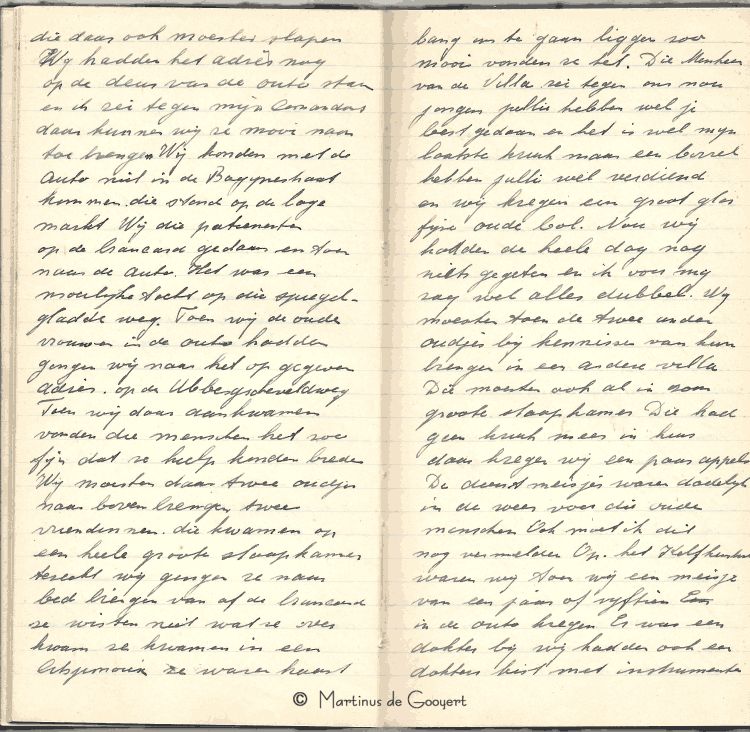 die daar ook moesten slapen
Wy hadden het adres nog
op de deur van de auto staan
en ik zei tegen myn Comandant
daar kunnen wij ze mooi naar
toe brengen Wij konden met de
Auto niet in de Bagynestraat
kommen. die stond op de lage
markt Wij die patienten
op de brancard gedaan en toen
naar de auto. Het was een
moeilyke tocht op die spiegel-
gladde weg. Toen wij de oude
vrouwen in de auto hadden
gongen wij naar het op gegeven
adres. op de Ubbergseveldweg
Toen wij daar aankwamen
vonden die menschen het zoo
fijn dat ze hulp konden bieden
Wij moesten daar twee oudjes
naar boven brengen, twee
vriendinnen. die kwamen op
een heele groote slaapkamer
terecht wij gongen ze naar
bed brengen van af de brancard
ze wisten niet wat ze over
kwam ze kwamen in een
ze waren haast
bang om te gaan liggen zoo
mooi vonden ze het. Die Menheer
van de Villa zei tegen ons nou
jongen jullie hebben wel je
best gedaan en het is wel myn
laatste kruik maar een borrel
hebben jullie wel verdiend
en wij kregen een groot glas
fijne oude bol. Nou wij
hadden de heele dag nog
niets gegeten en ik voor my
zag wel alles dubbel. Wy
moesten toen de twee ander
oudjes bij kennissen van hun
brengen in een andere villa
Die moesten ook al in zoon
groote slaapkamer Die had
geen kruik meer in huis
daar kregen wij een paar appels
De dienstmeisjes waren dadelijk
in de weer voor die oude
menschen Ook moet ik dit
nog vermelden Op. het Kelfkensbos
waren wij toen wij een meisje
van een jaar of vyftien Een
in de auto kregen Er was een
dokter bij wij hadden ook een
dokters kist met instrumenten
© Martinus de Gooyert